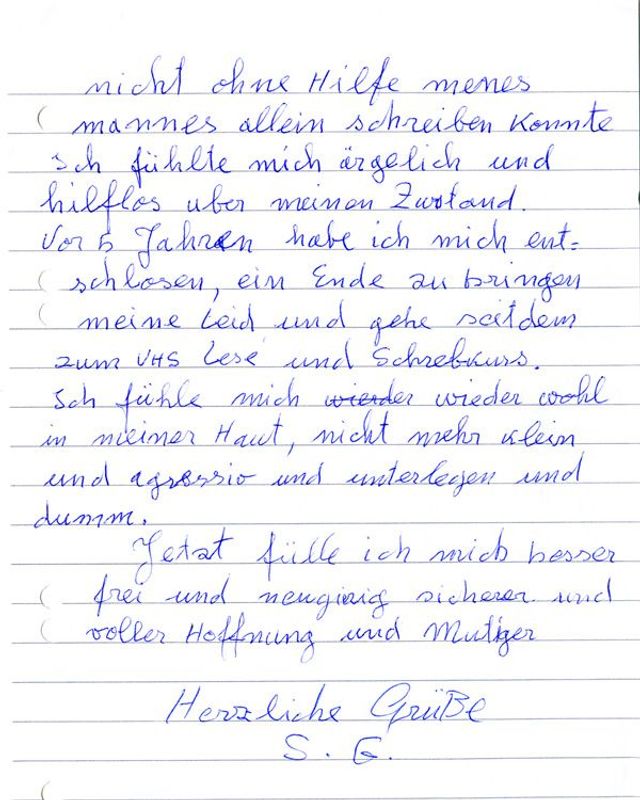 nicht ohne Hilfe menes
mannes allein schreiben konnte
Ich fühlte mich ärgelich und
hilflos uber meinen Zustand.
Vor 5 Jahren habe ich mich ent=
schlosen, ein Ende zu bringen
meine Leid und gehe seitdem
zum VHS Lese und Schrebkurs.
Ich fühle mich wieder wieder wohl
in meiner Haut, nicht mehr klein
und agressiv und unterlegen und
dumm.
Jetzt fülle ich mich besser
frei und neugirig sicherer und
voller Hoffnung und Mutiger
Herzliche Grüße
S. G.